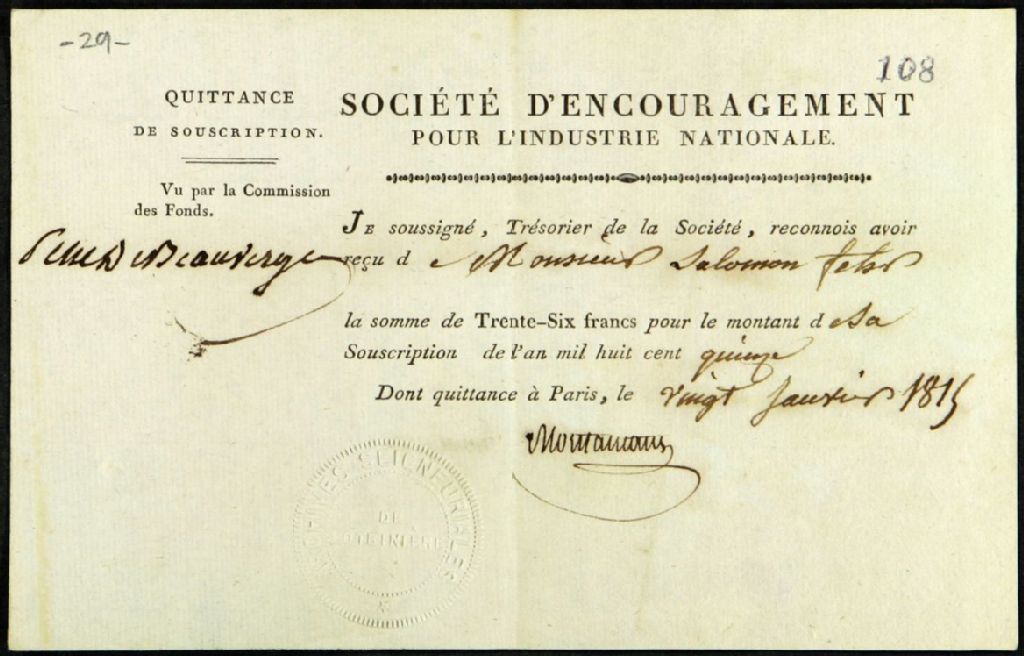 -29-
108
QUITTANCE
DE SOUSCRIPTION.
Vu par la Commission
des Fonds.
SOCIÉTÉ D'ENCOURAGEMENT
POUR L'INDUSTRIE NATIONALE.
JE soussigné, Trésorier de la Société, reconnois avoir
reçu de Monsieur Salomon
la somme de Trente-Six francs pour le montant de Sa
Souscription de l'an mil huit cent quinze
Dont quittance à Paris, le vingt Janvier 1815
ARCHIVES SEIGNEURIALES
DE
LOTBINIÈRE